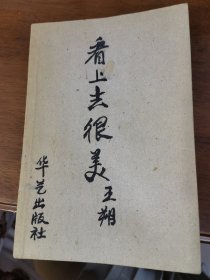 看上去很美
王朔
华艺出版社